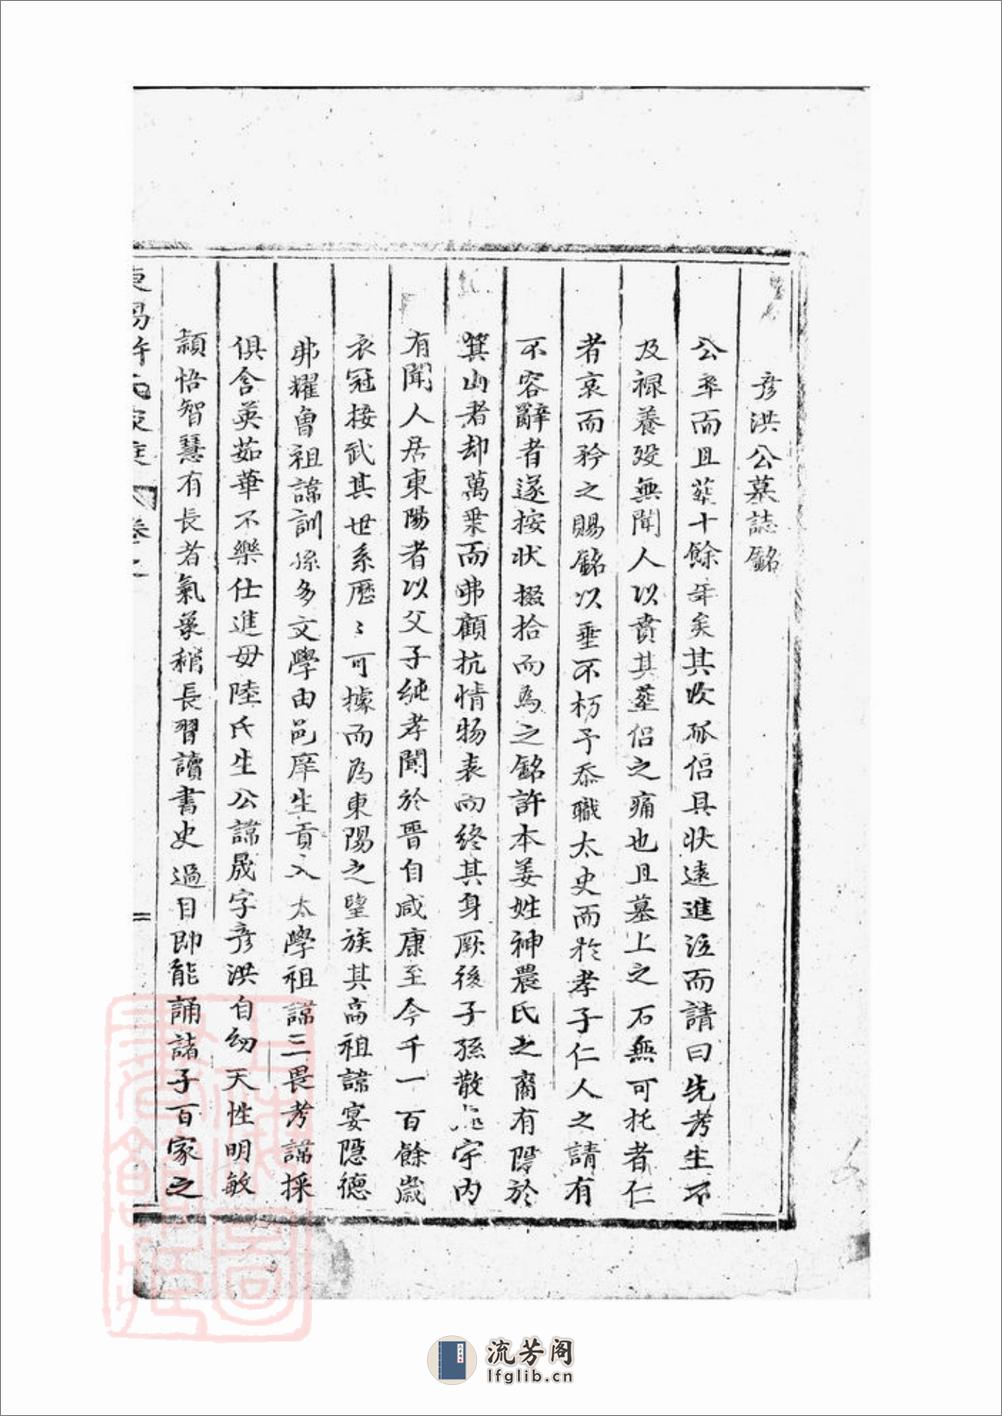 彥洪公墓誌銘
公卒而且葬十餘年矣其孤侶具狀遠進泣而請曰先考生不
及祿養殁無聞人以賁其塟侶之痛也且墓上之石無可托者仁
者哀而矜之賜銘以垂不朽予忝職太史而於孝子仁人之請有
不容辭者遂按狀掇拾而爲之銘許本姜姓神農氏之裔有隱於
箕山者却萬乗而弗顧抗情物表而終其身厥後子孫散宇内
有聞人居東陽者以父子純孝聞於晉自咸康至今千一百餘歲
衣冠接武其世系歷〻可據而爲東陽之望族其高祖諱宴隱德
弗耀曾祖諱訓孫多文學由邑庠生貢入太學祖諱三畏考諱採
俱含英茹華不樂仕進母陸氏生公諱晟字彥洪自幼天性明敏
頴悟智慧有長者氣象稍長習讀書史過目即能誦諸子百家之
東陽許氏家乗 卷之
流芳阁
lfglib.cn